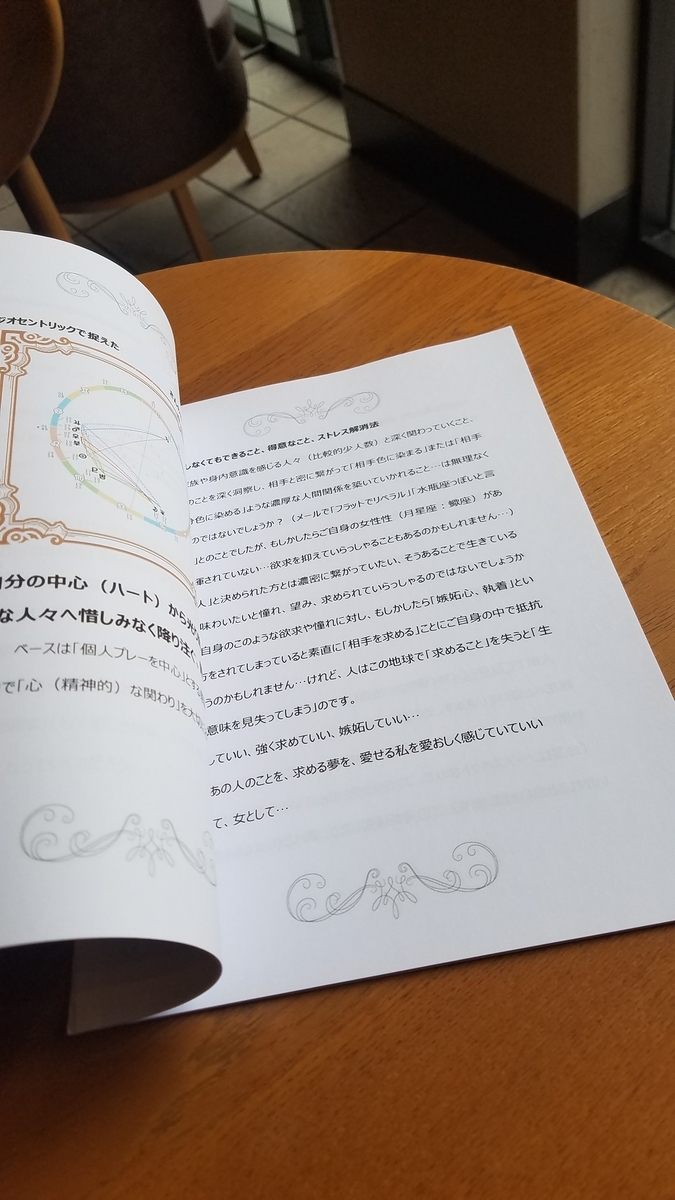 ジオセントリックで捉えた
自分の中心（ハート）から
な人々へ惜しみなく降り注
ベースは「個人プレーを中心」とする
で「心（精神的）な関わり」を大
しなくてもできること、得意なこと、ストレス解消法
族や身内意識を感じる人々（比較的少人数）と深く関わっていくこと、
のことを深く洞察し、相手と密に繋がって「相手色に染まる」または「相手
色に染める」ような濃厚な人間関係を築いていかれること…は無理なく
のではないでしょうか？（メールで「フラットでリベラル」「水瓶座っぽいと言
」とのことでしたが、もしかしたらご自身の女性性（月星座：蠍座）があ
揮されていない…欲求を抑えていらっしゃることもあるのかもしれません…）
人」と決められた方とは濃密に繋がっていたい、そうあることで生きている
味わいたいと憧れ、望み、求められていらっしゃるのではないでしょうか
自身のこのような欲求や憧れに対し、もしかしたら「嫉妬心、執着」とい
方をされてしまっていると素直に「相手を求める」ことにご自身の中で抵抗
うのかもしれません…けれど、人はこの地球で「求めること」を失うと「生
意味を見失ってしまう」のです。
していい、強く求めていい、嫉妬していい…
あの人のことを、求める夢を、愛せる私を愛おしく感じていていい
て、女として…